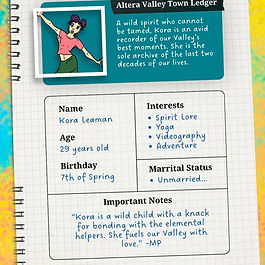 Altera Valley Town Ledger
A wild spirit who cannot
be tamed, Kora is an avid
recorder of our Valley's
best moments. She is the
sole archive of the last two
decades of our lives.
Name
Kora Leaman
Age
29 years old
Birthday
7th of Spring
Interests
• Spirit Lore
• Yoga
• Videography
• Adventure
Marrital Status
• Unmarried...
Important Notes
"Kora is a wild child with a knack
for bonding with the elemental
helpers. She fuels our Valley with
love." -MP